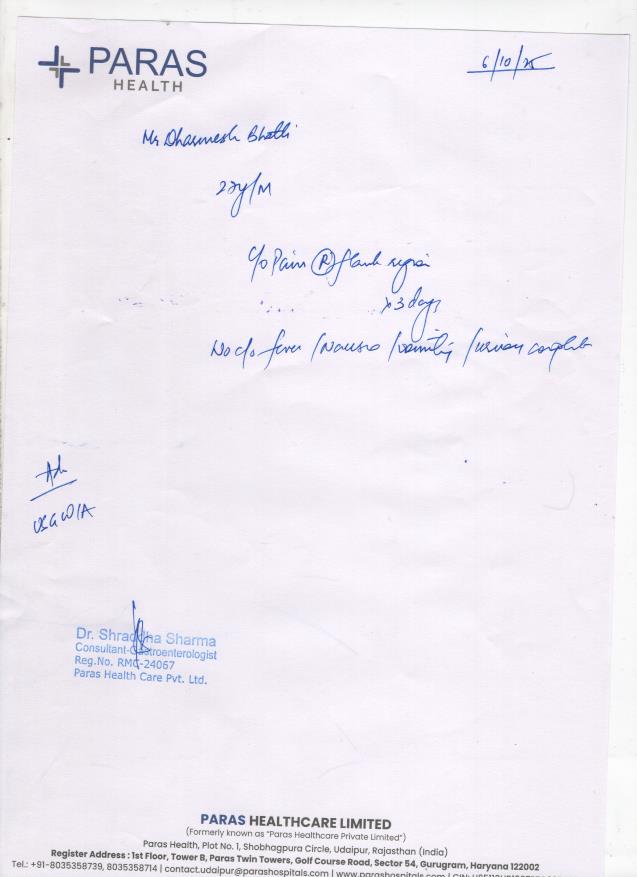 PARAS
HEALTH
6/10/25
Mr Dharmesh Bhatti
22y/M
c/o Pain (R) flank region
x 3 days
No c/o fever / Nausea / vomiting / urinary complaints
Adv
USG W/A
Dr. Shraddha Sharma
Consultant-Gastroenterologist
Reg.No. RMC-24067
Paras Health Care Pvt. Ltd.
PARAS HEALTHCARE LIMITED
(Formerly known as "Paras Healthcare Private Limited")
Paras Health, Plot No. 1, Shobhagpura Circle, Udaipur, Rajasthan (India)
Register Address : 1st Floor, Tower B, Paras Twin Towers, Golf Course Road, Sector 54, Gurugram, Haryana 122002
Tel.: +91-8035358739, 8035358714 | contact.udaipur@parashospitals.com | www.parashospitals.com | CIN: